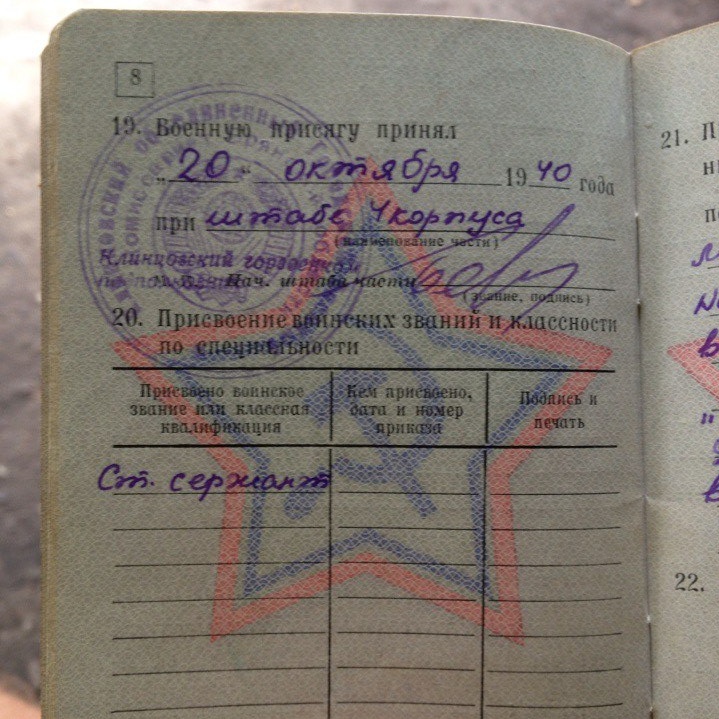 8
19. Военную присягу принял
„20“ октября 1940 года
при штабе 4 корпуса
(наименование части)
Клинцовский горвоенком
Нач. штаба части
(звание, подпись)
20. Присвоение воинских званий и классности
по специальности
Присвоено воинское
звание или классная
квалификация
Кем присвоено,
дата и номер
приказа
Подпись и
печать
Ст. сержант
21. П
22.